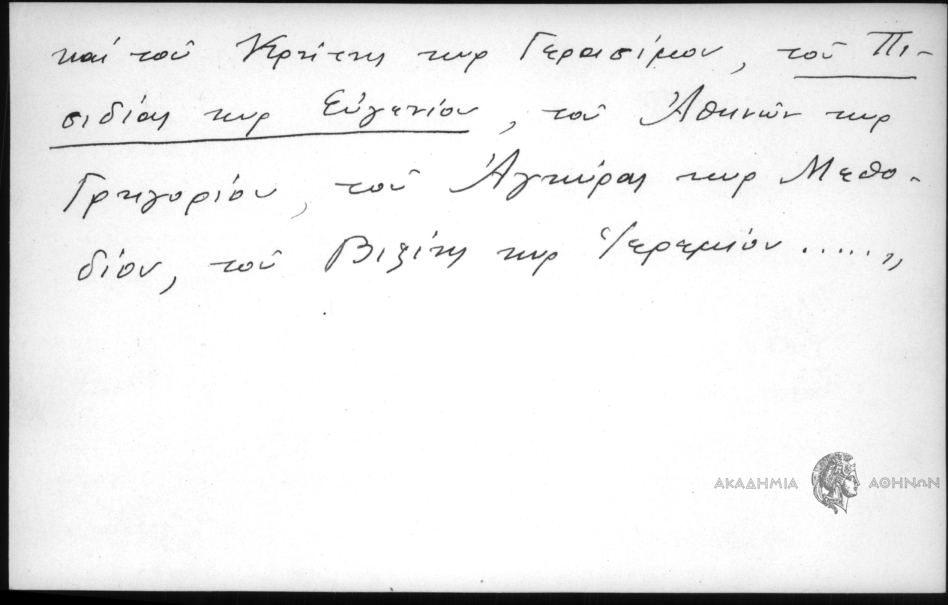 καί τοῦ Κρήτης κυρ Γερασίμου, τοῦ Πι-
σιδίας κυρ Εὐγενίου, τοῦ Ἀθηνῶν κυρ
Γρηγορίου, τοῦ Ἀγκύρας κυρ Μεθο-
δίου, τοῦ Βιζύης κυρ Ἱερεμίου .....,,
ΑΚΑΔΗΜΙΑ ΑΘΗΝΩΝ